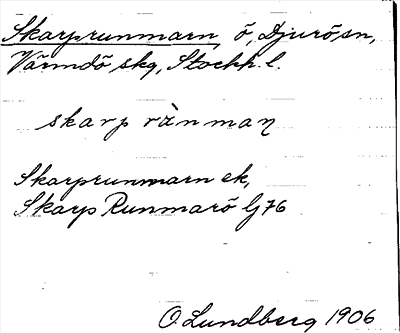 Skarprunmarn, ö, Djurö sn,
Värmdö skg, Stockh. l.
skarp rùnmaɳ
Skarprunmarn ek,
Skarp Runmarö Gj76
O. Lundberg 1906